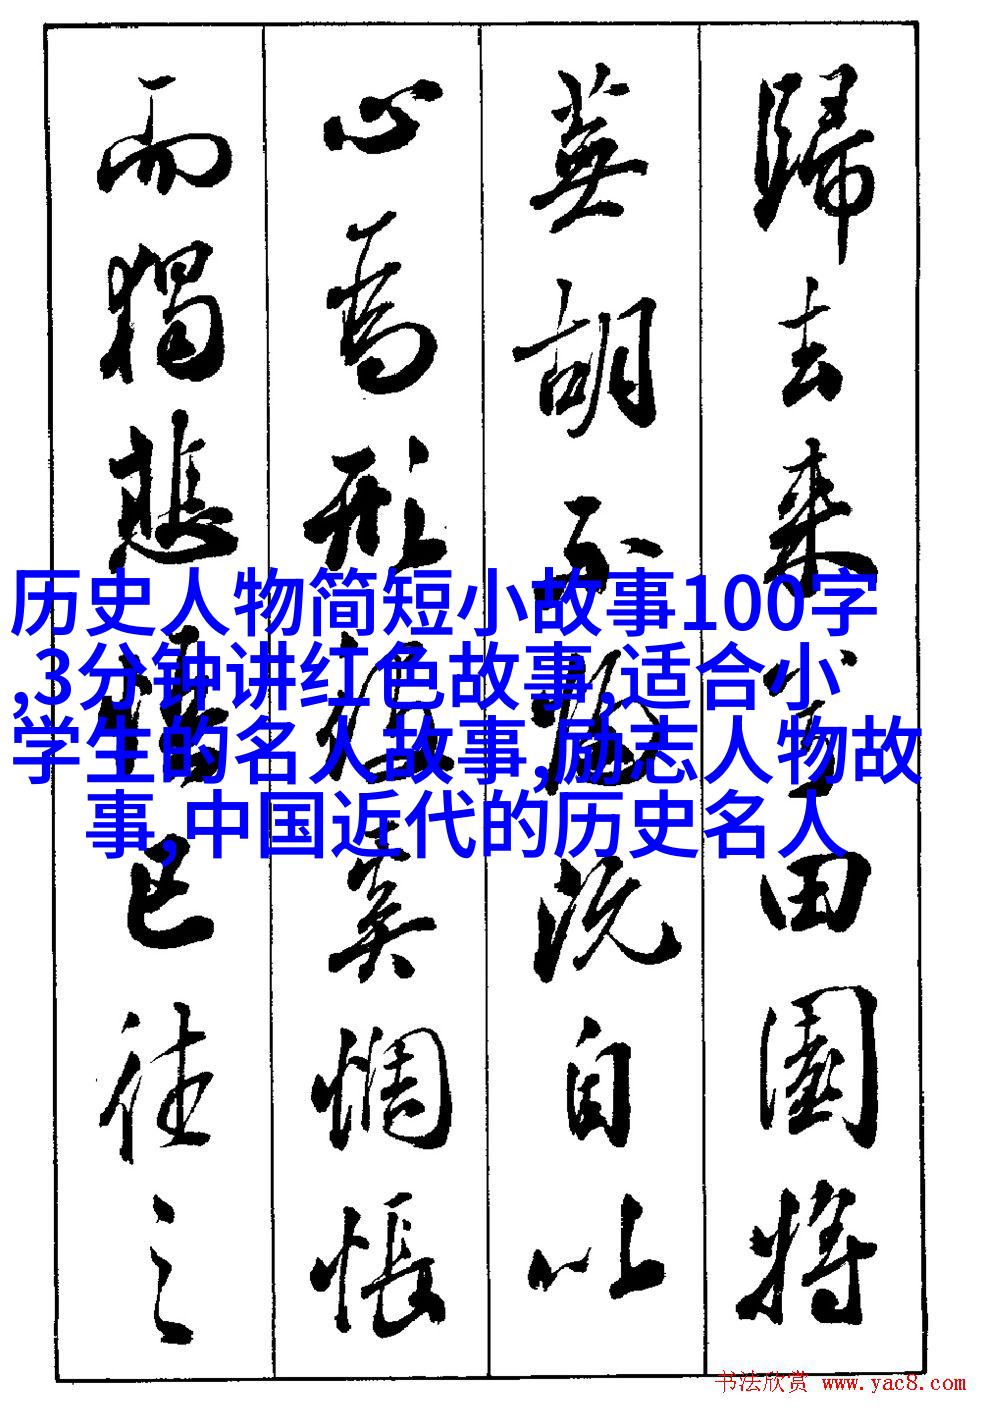 歸去来兮田園將
蕪胡不歸既自以
心為形役奚惆悵
而獨悲悟已往之
历史人物简短小故事100字
,3分钟讲红色故事,适合小
学生的名人故事,励志人物故
事,中国近代的历史名人
书法欣赏 www.yac8.com